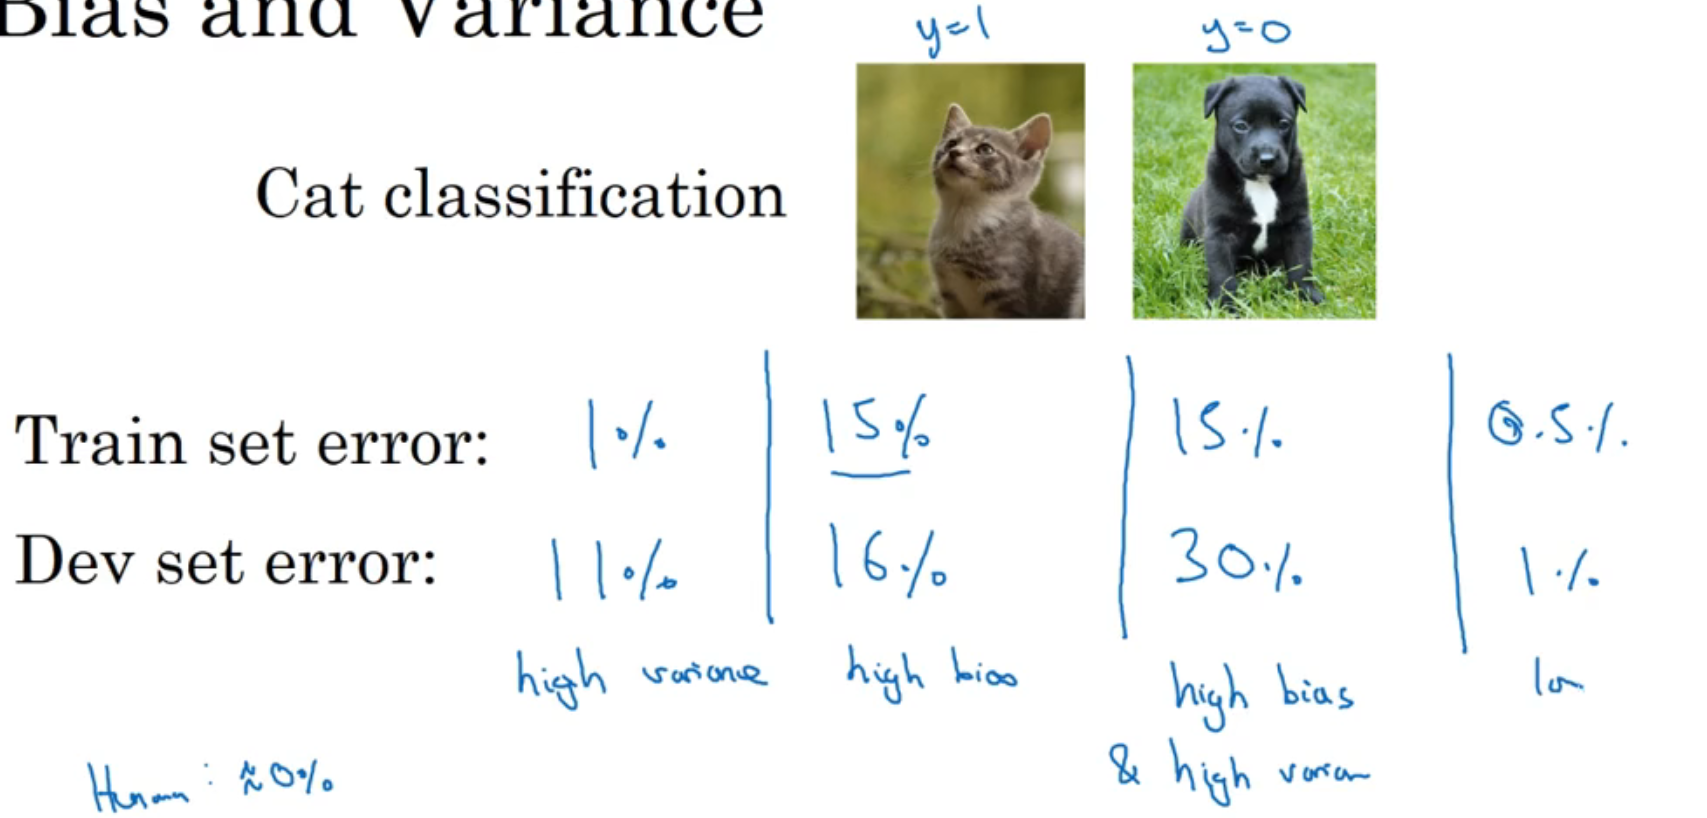 Bias and Variance
y=1
y=0
Cat classification
Train set error: 1% 15% 15% 0.5%
Dev set error: 11% 16% 30% 1%
high variance high bias high bias lo
& high varian
Human: ≈0%